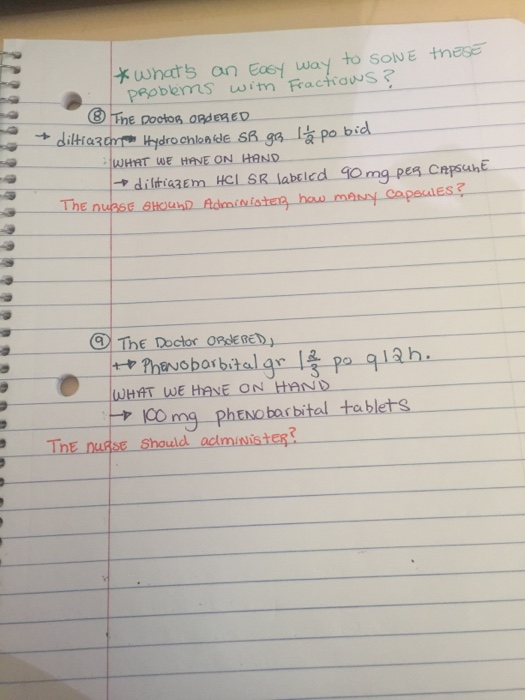 * what's an Easy way to SOLVE these
problems with Fractions?
⑧ The Doctor ORDERED
→ diltiazem Hydrochloride SR gr 1 1/2 po bid
WHAT WE HAVE ON HAND
→ diltiazem HCl SR labeled 90 mg per CAPSULE
The nurse SHOULD Administer how MANY capsules?
⑨ The Doctor ORDERED,
→ Phenobarbital gr 1 2/3 po q12h.
WHAT WE HAVE ON HAND
→ 100 mg phenobarbital tablets
The nurse should administer?